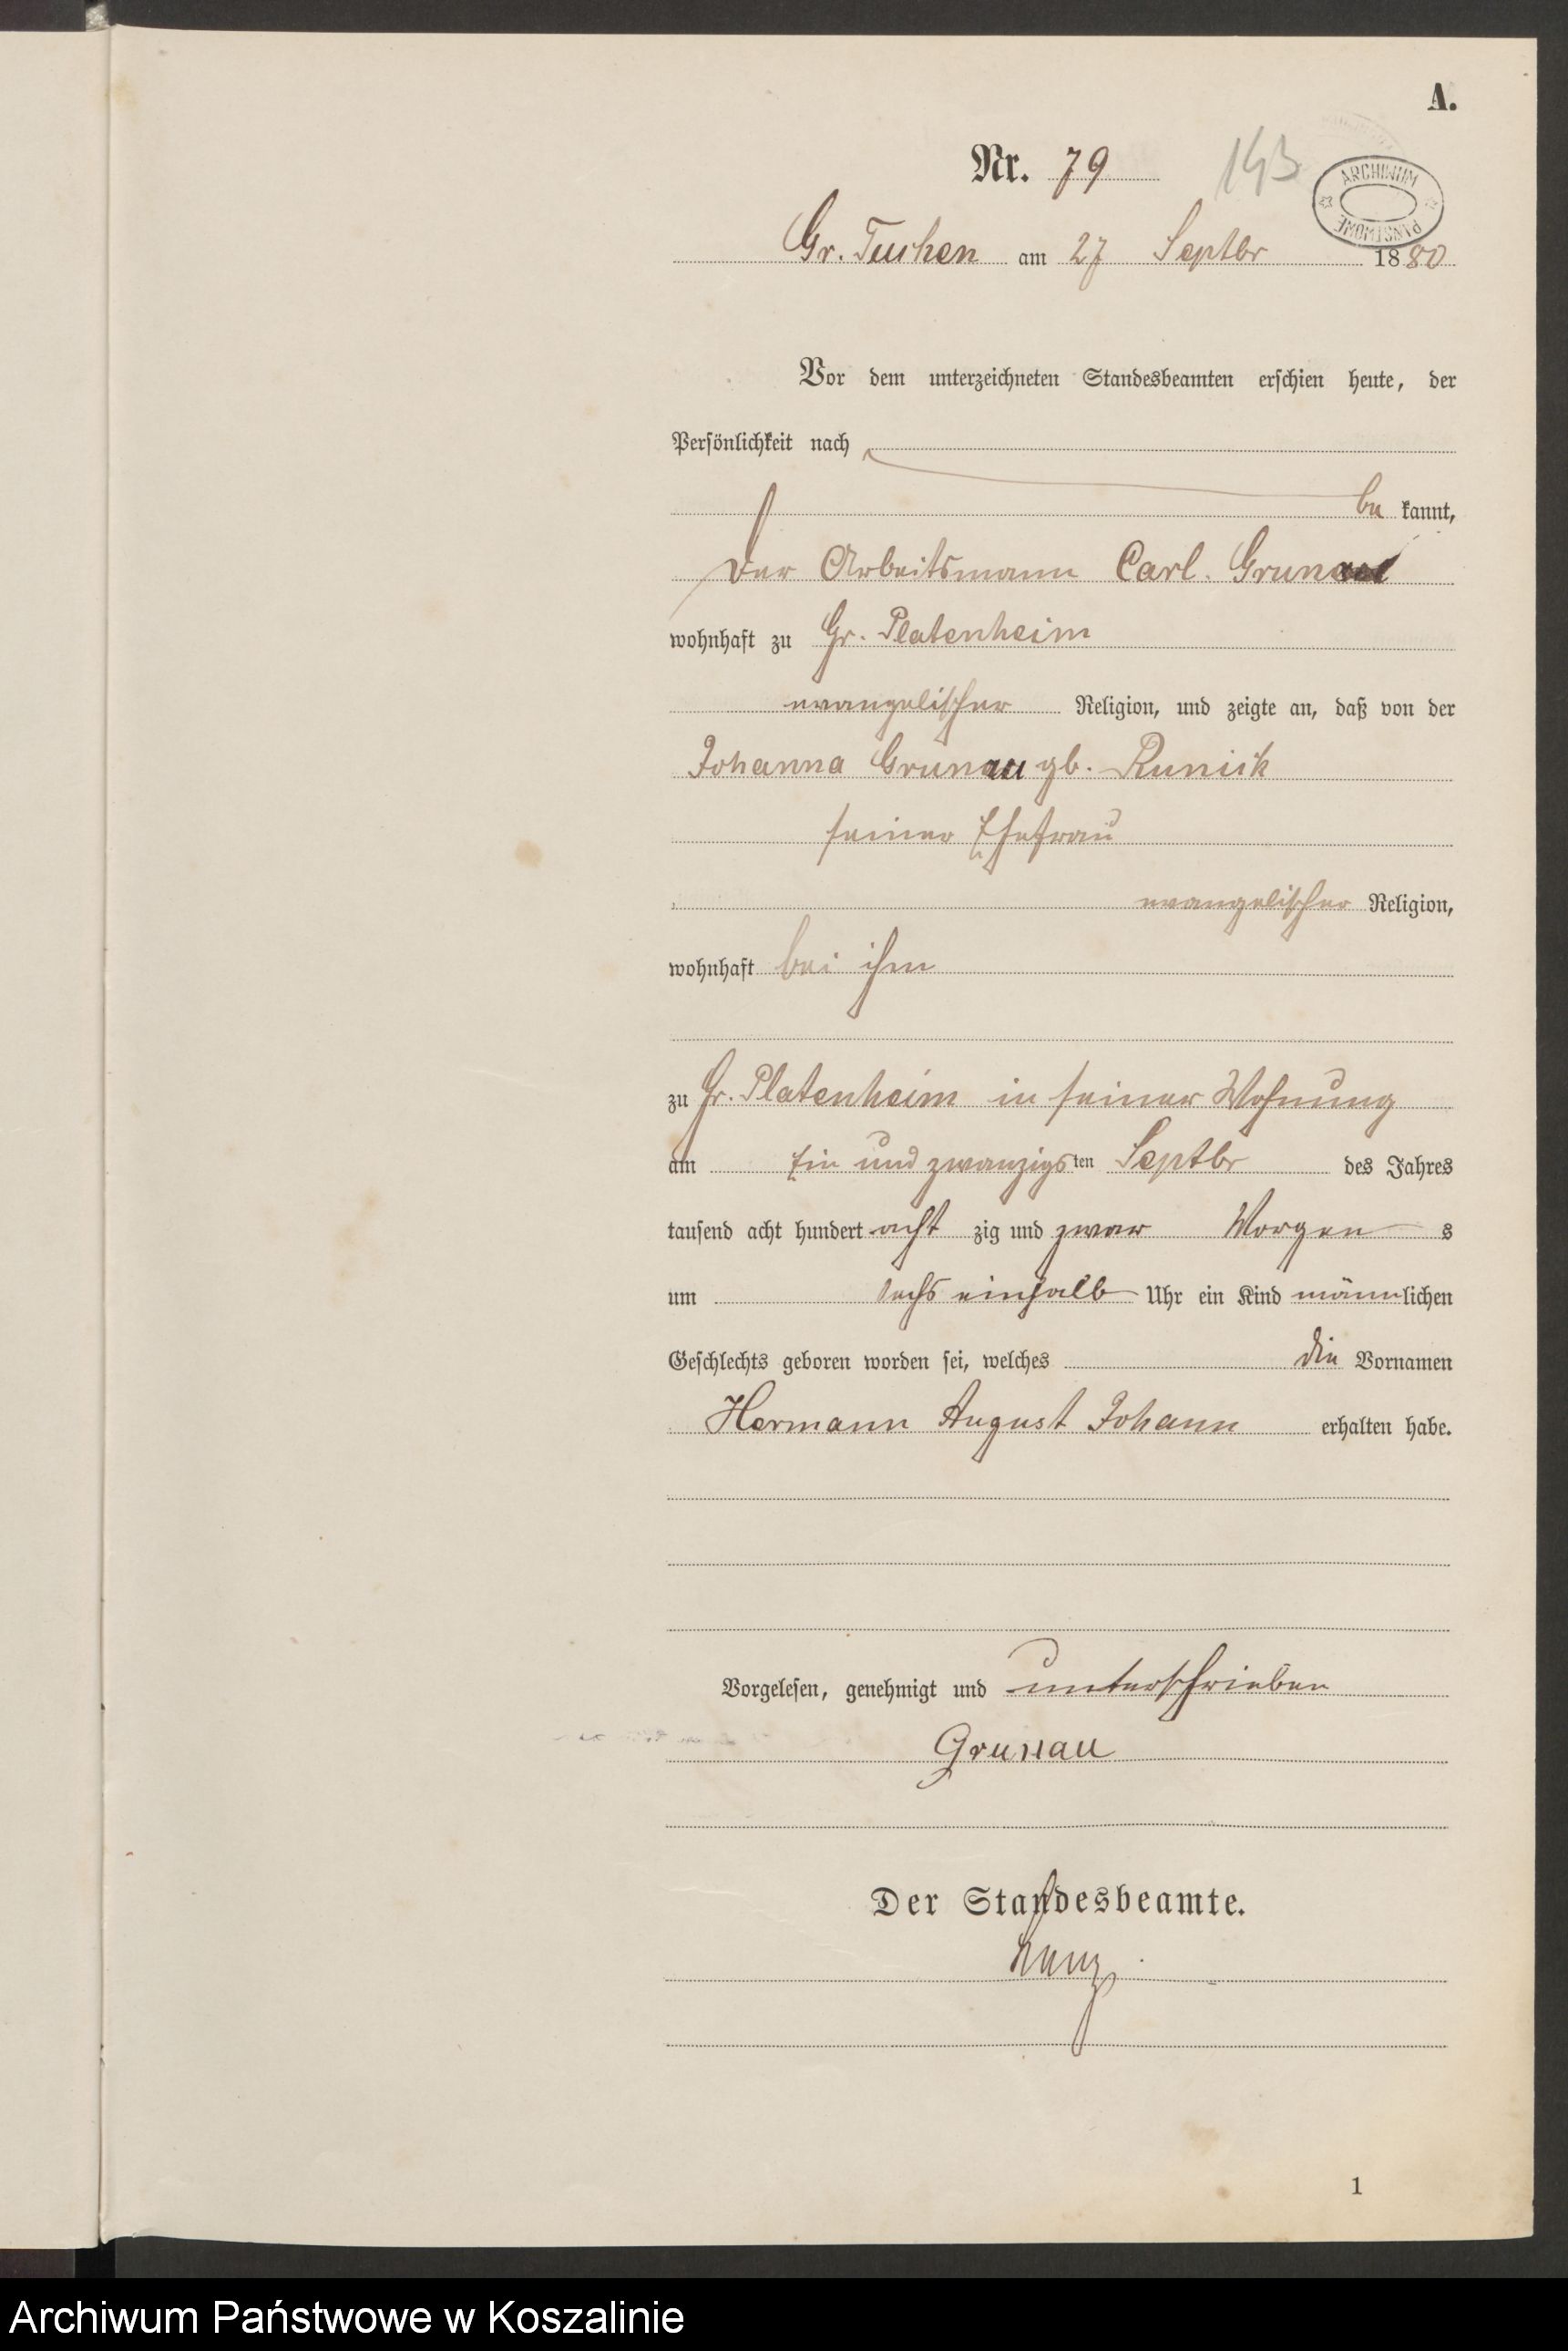 A.
Nr. 79
143
ARCHIWUM PAŃSTWOWE
Gr. Tuchen am 27 Septbr 1880
Vor dem unterzeichneten Standesbeamten erschien heute, der
Persönlichkeit nach
be kannt,
der Arbeitsmann Carl. Grunau
wohnhaft zu Gr. Platenheim
evangelischer Religion, und zeigte an, daß von der
Johanna Grunau gb. Runick
seiner Ehefrau
evangelischer Religion,
wohnhaft bei ihm
zu Gr. Platenheim in seiner Wohnung
am Ein und zwanzigsten Septbr des Jahres
tausend acht hundert acht zig und zwar Morgen s
um sechs einhalb Uhr ein Kind männlichen
Geschlechts geboren worden sei, welches die Vornamen
Hermann August Johann erhalten habe.
Vorgelesen, genehmigt und unterschrieben
Grunau
Der Standesbeamte.
1
Archiwum Państwowe w Koszalinie